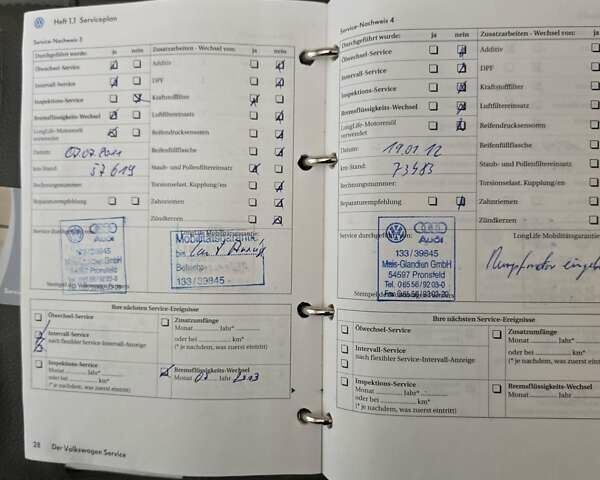 Heft 1.1 Serviceplan
Service-Nachweis 3
Durchgeführt wurde: ja nein
Ölwechsel-Service
Intervall-Service
Inspektions-Service
Bremsflüssigkeits-Wechsel
LongLife-Motorenöl
verwendet
Datum: 07.07.2011
km-Stand: 57 619
Rechnungsnummer:
Reparaturempfehlung
Zusatzarbeiten - Wechsel von: ja nein
Additiv
DPF
Kraftstofffilter
Luftfiltereinsatz
Reifendrucksensoren
Reifenfüllflasche
Staub- und Pollenfiltereinsatz
Torsionselast. Kupplung/en
Zahnriemen
Zündkerzen
Service durchgeführt
Audi
133/39845
Meis-Glandien GmbH
54597 Pronsfeld
LongLife Mobilitätsgarantie:
Mobilitätsgarantie
bis
Betriebs
133/39845
Ihre nächsten Service-Ereignisse
Ölwechsel-Service
Intervall-Service
nach flexibler Service-Intervall-Anzeige
Inspektions-Service
Monat Jahr*
oder bei km*
(* je nachdem, was zuerst eintritt)
Zusatzumfänge
Monat Jahr*
oder bei km*
(* je nachdem, was zuerst eintritt)
Bremsflüssigkeits-Wechsel
Monat 07 Jahr 2013
28 Der Volkswagen Service
Service-Nachweis 4
Durchgeführt wurde: ja nein
Ölwechsel-Service
Intervall-Service
Inspektions-Service
Bremsflüssigkeits-Wechsel
LongLife-Motorenöl
verwendet
Datum: 19.01.12
km-Stand: 73483
Rechnungsnummer:
Reparaturempfehlung
Zusatzarbeiten - Wechsel von:
Additiv
DPF
Kraftstofffilter
Luftfiltereinsatz
Reifendrucksensoren
Reifenfüllflasche
Staub- und Pollenfiltereinsatz
Torsionselast. Kupplung/en
Zahnriemen
Zündkerzen
Service durchgeführt:
Audi
133/39845
Meis-Glandien GmbH
54597 Pronsfeld
Tel. 0 65 56/92 03-0
LongLife Mobilitätsgarantie
Ihre nächsten Service-Ereignisse
Ölwechsel-Service
Intervall-Service
nach flexibler Service-Intervall-Anzeige
Inspektions-Service
Monat Jahr*
oder bei km*
(* je nachdem, was zuerst eintritt)
Zusatzumfänge
Monat Jahr*
oder bei km*
(* je nachdem, was zuerst eintritt)
Bremsflüssigkeits-Wechsel
Monat Jahr